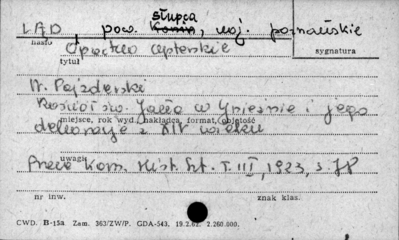 słupca
LĄD pow. Konin, woj. poznańskie
hasło
sygnatura
Opactwo cysterskie
tytuł
N. Pajzderski
Kościół św. Jana w Gnieźnie i jego
miejsce, rok wyd., nakładca, format, objętość
dekoracje z XIV wieku
uwagi
Prace Kom. Hist. Szt. T. III, 1923, s.
nr inw.
znak klas.
CWD. B-15a. Zam. 363/ZW/P. GDA-543. 19.2.62. 2.260.000.